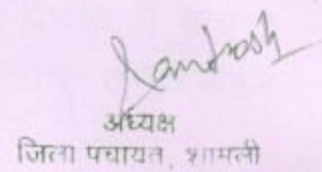 Santosh
अध्यक्ष
जिला पंचायत, शामली